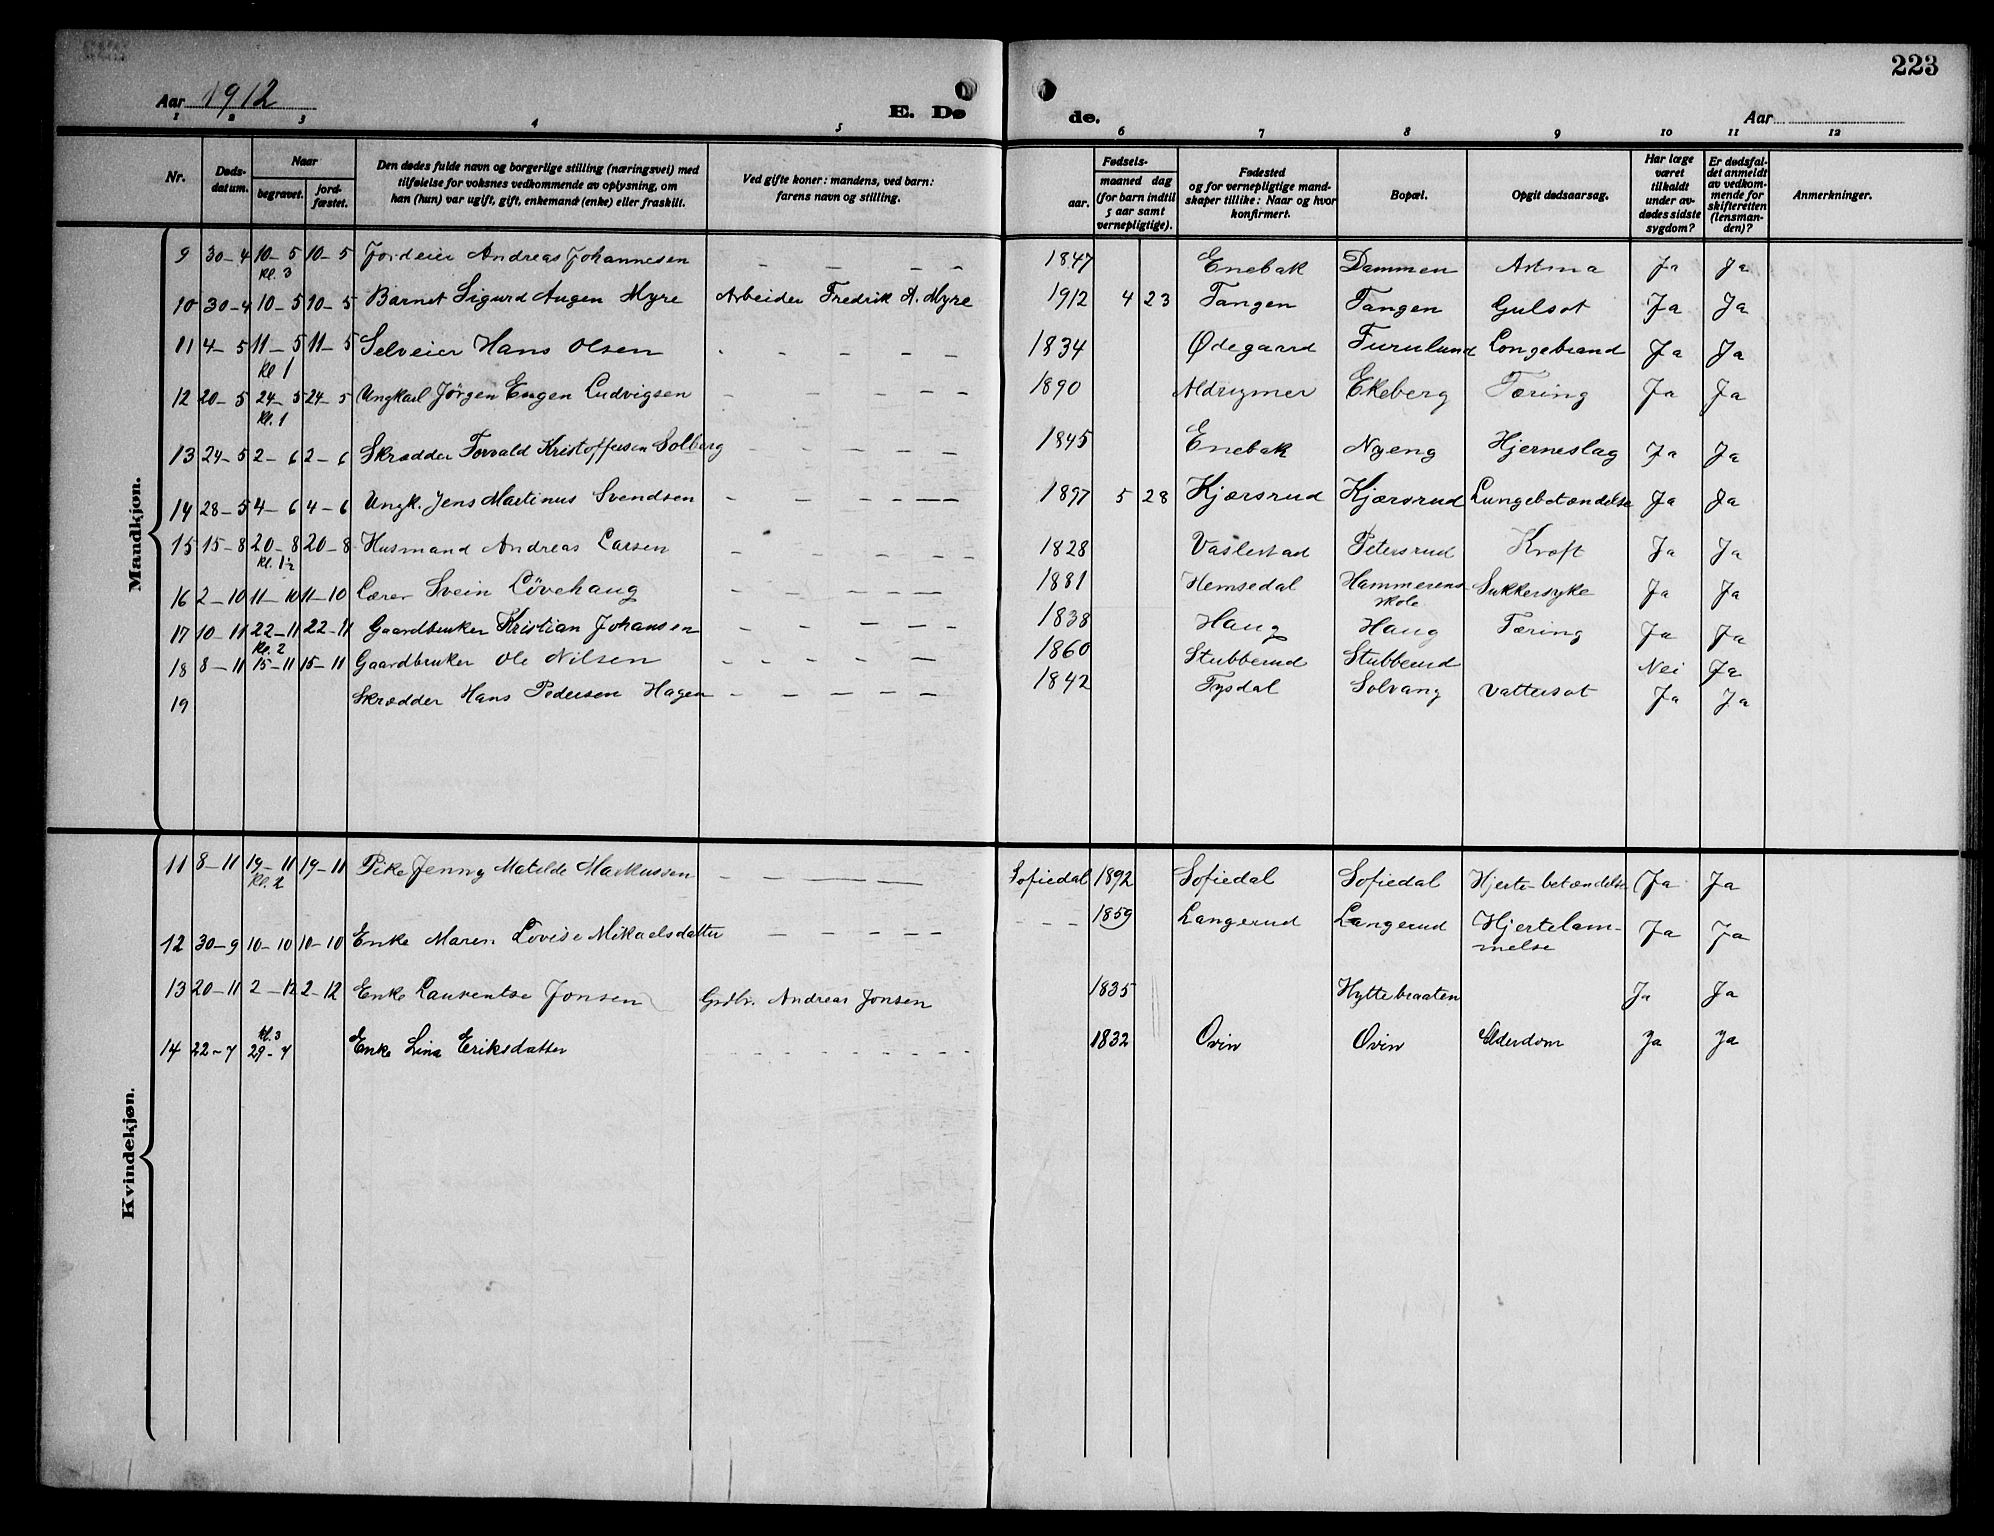 223
Aar 1912
E. Dø
de.
Aar
1 2 3 4 5 6 7 8 9 10 11 12
Nr.
Døds-
datum.
Naar
begravet.
jord-
fæstet.
Den dødes fulde navn og borgerlige stilling (næringsvei) med
tilføielse for voksnes vedkommende av oplysning, om
han (hun) var ugift, gift, enkemand (enke) eller fraskilt.
Ved gifte koner: mandens, ved barn:
farens navn og stilling.
Fødsels-
aar.
maaned dag
(for barn indtil
5 aar samt
vernepligtige).
Fødested
og for vernepligtige mand-
skaper tillike: Naar og hvor
konfirmert.
Bopæl.
Opgit dødsaarsag.
Har læge
været
tilkaldt
under av-
dødes sidste
sygdom?
Er dødsfal-
det anmeldt
av vedkom-
mende for
skifteretten
(lensman-
den)?
Anmerkninger.
Mandkjøn.
9 30-4 10-5 10-5 Jordeier Andreas Johannesen - - - - 1847 Enebak Dammen Astma Ja Ja
kl. 3
10 30-4 10-5 10-5 Barnet Sigurd Augen Myre Arbeider Fredrik A. Myre 1912 4 23 Tangen Tangen Gulsot Ja Ja
11 4-5 11-5 11-5 Selveier Hans Olsen - - - - - 1834 Ødegaard Furulund Longebrand Ja Ja
kl 1
12 20-5 24-5 24-5 Ungkarl Jörgen Eugen Ludvigsen - - - - - 1890 Aldrigmer Ekeberg Tæring Ja Ja
kl. 1
13 24-5 2-6 2-6 Skrædder Torvald Kristoffersen Solberg - - - - - 1845 Enebak Nyeng Hjerneslag Ja Ja
14 28-5 4-6 4-6 Ungk. Jens Martinus Svendsen - - - - - 1897 5 28 Kjærsrud Kjærsrud Lungebetændelse Ja Ja
15 15-8 20-8 20-8 Husmand Andreas Larsen - - - - - 1828 Vaslestad Petersrud Kræft Ja Ja
kl. 1½
16 2-10 11-10 11-10 Lærer Svein Lövehaug - - - - - 1881 Hemsedal Hammerens Sukkersyke Ja Ja
skole
17 10-11 22-11 22-11 Gaardbruker Kristian Johansen - - - - - 1838 Haug Haug Tæring Ja Ja
kl. 2
18 8-11 15-11 15-11 Gaardbruker Ole Nilsen - - - - - 1860 Stubberud Stubberud Nei Ja
19 Skrædder Hans Pedersen Hagen - - - - - 1842 Tysdal Solvang Vattersot Ja Ja
Kvindekjøn.
11 8-11 19-11 19-11 Pike Jenny Matilde Markussen - - - - Sofiedal 1892 Sofiedal Sofiedal Hjerte-betændelse Ja Ja
kl. 2
12 30-9 10-10 10-10 Enke Maren Lovise Mikaelsdatter - - - - - - - 1859 Langerud Langerud Hjertelam- Ja Ja
melse
13 20-11 2-12 2-12 Enke Laurentse Jonsen Grdbr. Andreas Jonsen 1835 Hyttebraaten Ja Ja
kl. 3
14 22-7 29-7 Enke Lina Eriksdatter - - - - - - - 1832 Ovin Ovin Alderdom Ja Ja